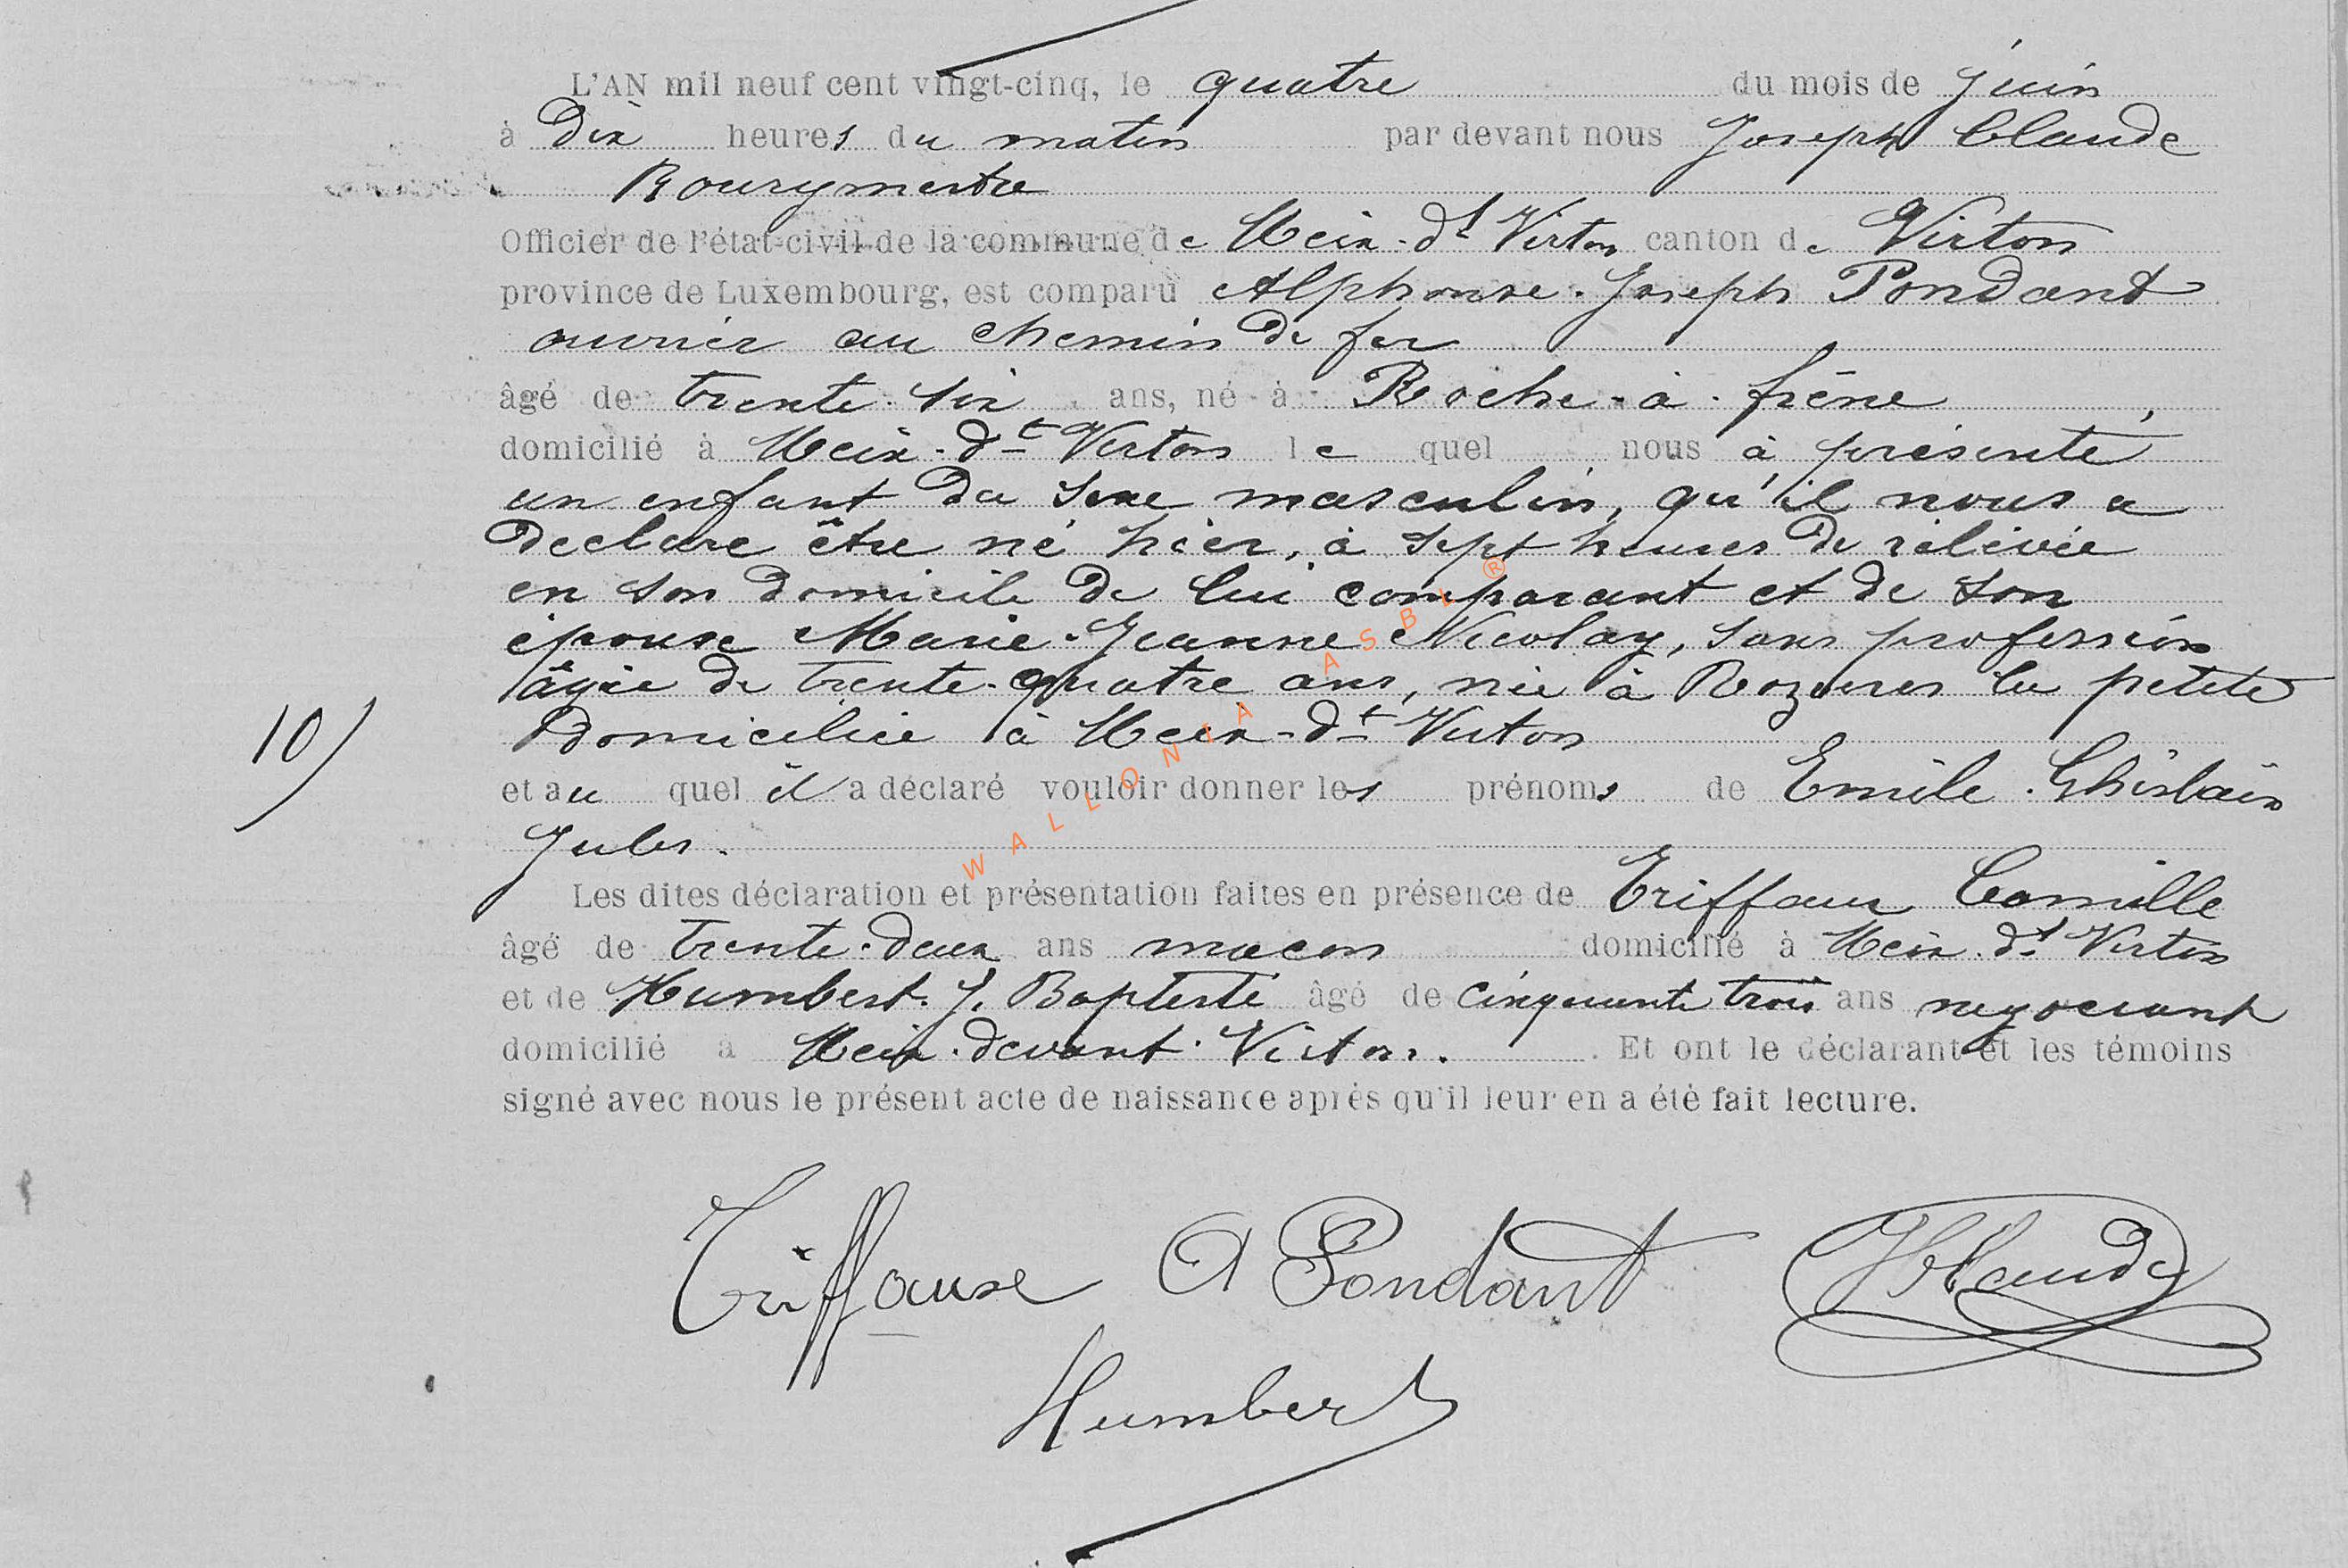 L'AN mil neuf cent vingt-cinq, le quatre du mois de juin
à dix heures du matin par devant nous Joseph Claude
Bourgmestre
Officier de l'état-civil de la commune de Meix-dt Virton canton de Virton
province de Luxembourg, est comparu Alphonse-Joseph Pondant
ouvrier au chemin de fer
âgé de trente-six ans, né à Roche-à-frêne,
domicilié à Meix-dt Virton lequel nous à présenté
un enfant du sexe masculin, qu'il nous a
declaré être né hier, à sept heures de relevée
en son domicile de lui comparant et de son
épouse Marie-Jeanne Nicolay, sans profession
âgée de trente-quatre ans, née à Rozieres la petite
domiciliée à Meix-dt Virton
10)
et au quel il a déclaré vouloir donner les prénoms de Emile-Ghislain
Jules.
Les dites déclaration et présentation faites en présence de Triffaux Camille
âgé de trente-deux ans macon domicilié à Meix-dt Virton
et de Humbert J. Baptiste âgé de cinquante trois ans negociant
domicilié à Meix-devant-Virton. Et ont le déclarant et les témoins
signé avec nous le présent acte de naissance après qu'il leur en a été fait lecture.
Triffaux A Pondant J Claude
Humbert
WALLONIA ASBL ®